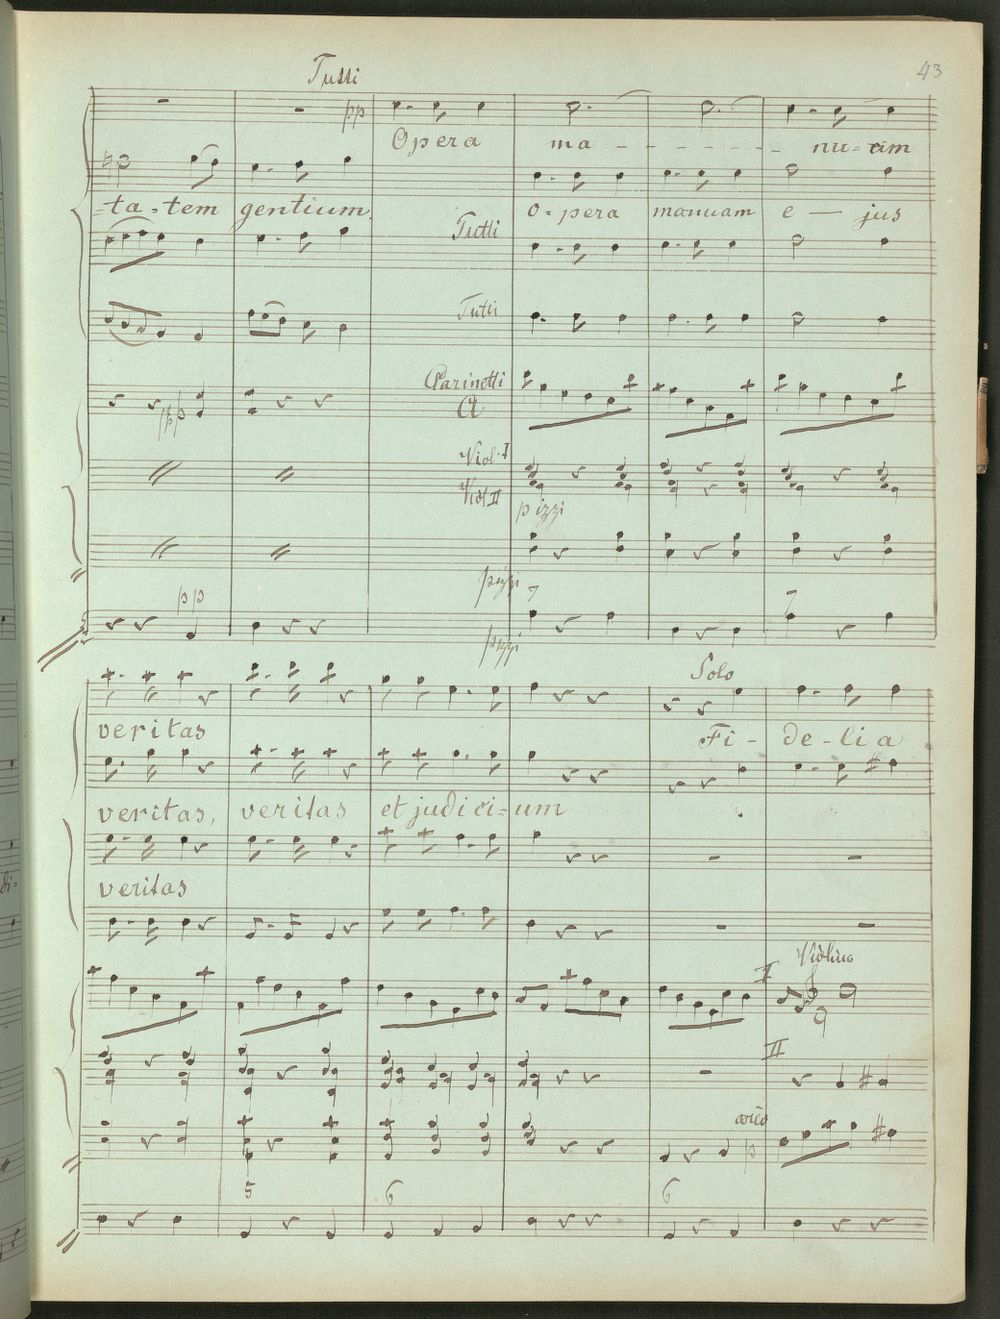 43
Tutti
pp
Opera ma - - - - - - - nu-am
-ta-tem gentium. o-pera manuam e — jus
Tutti
Tutti
Clarinetti
A.
pp
Viol. I
Viol II
pizzi
pizzi
7 7
pp
pizzi
Solo
veritas Fi - de-li a
veritas, veritas et judici-um
veritas
Violino
I
II
arco
p
5 6 6